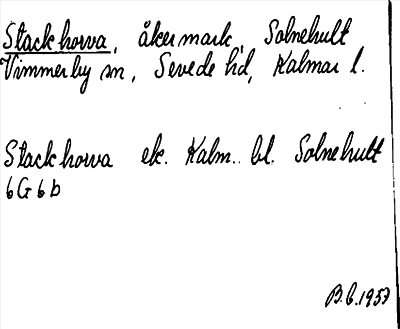 Stackhorva, åkermark, Solnehult
Vimmerby sn, Sevede hd, Kalmar l.
Stackhorva ek. Kalm.. bl. Solnehult
6G6b
B.G.1957